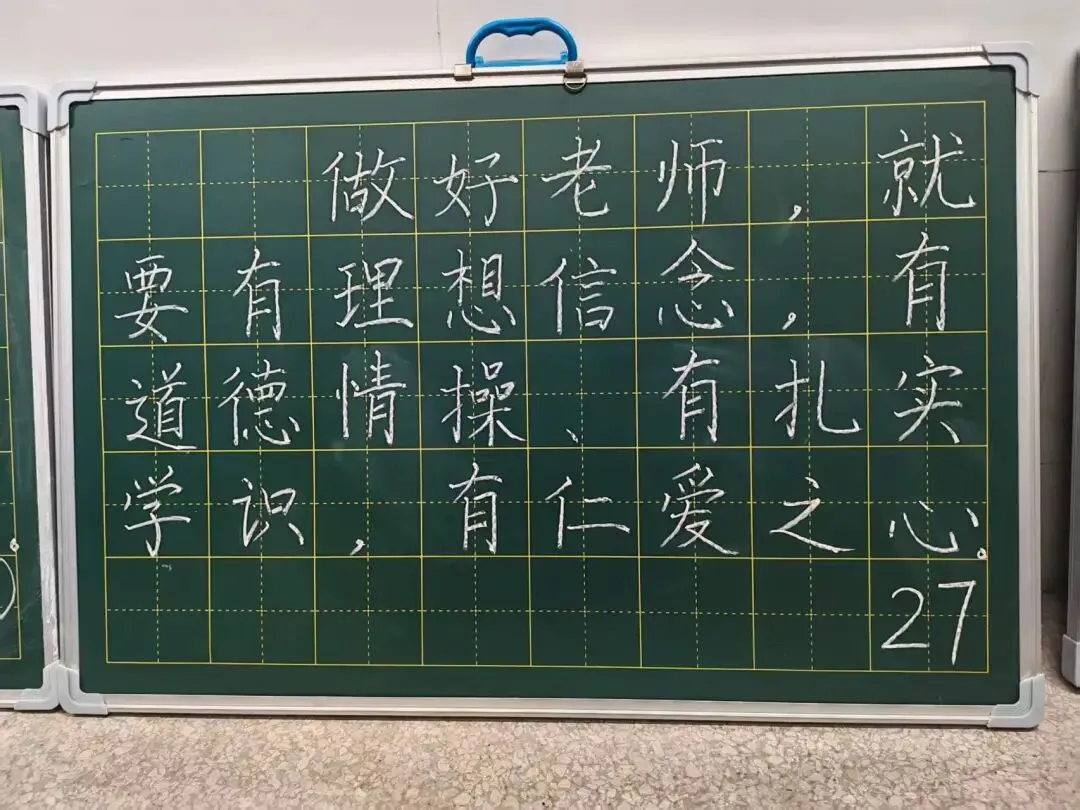 做好老师，就
要有理想信念，有
道德情操、有扎实
学识，有仁爱之心。
27